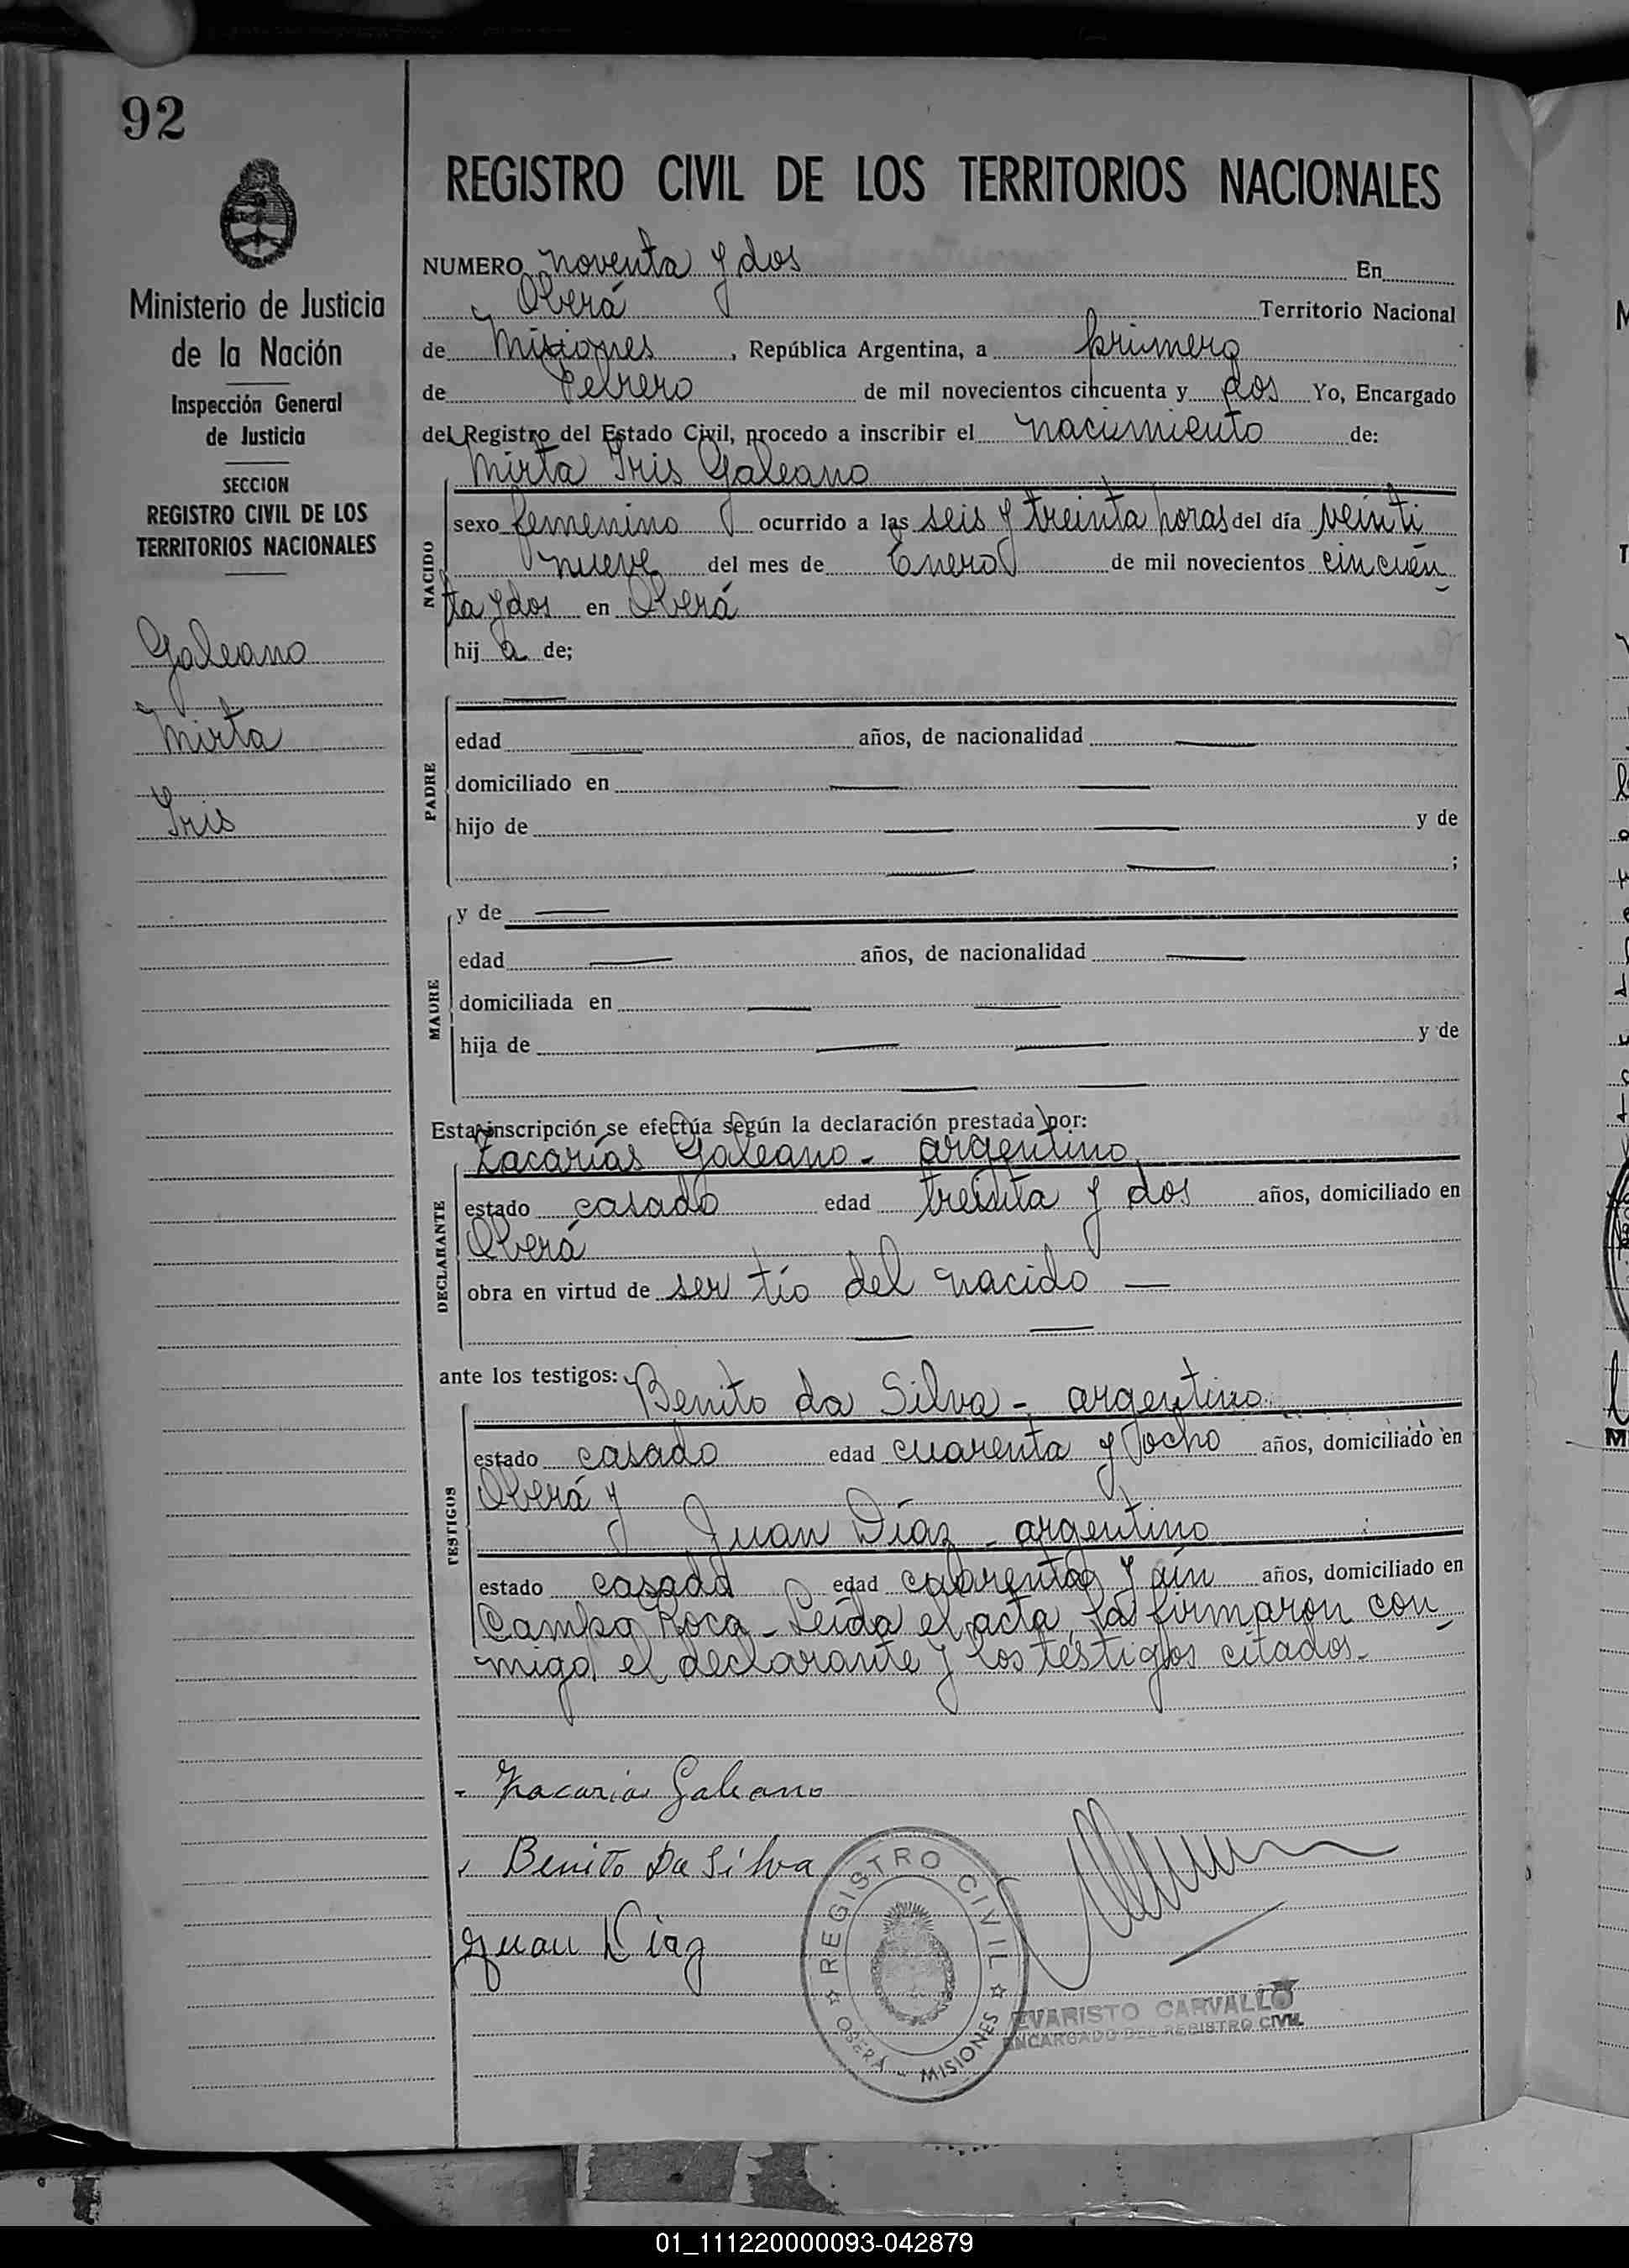 92
Ministerio de Justicia
de la Nación
Inspección General
de Justicia
SECCION
REGISTRO CIVIL DE LOS
TERRITORIOS NACIONALES
Galeano
Mirta
Iris
REGISTRO CIVIL DE LOS TERRITORIOS NACIONALES
NUMERO noventa y dos En
Oberá Territorio Nacional
de Misiones, República Argentina, a primero
de Febrero de mil novecientos cincuenta y dos Yo, Encargado
del Registro del Estado Civil, procedo a inscribir el nacimiento de:
Mirta Iris Galeano
NACIDO
sexo femenino ocurrido a las seis y treinta horas del día veinti
nueve del mes de Enero de mil novecientos cincuen
ta y dos en Oberá
hij a de;
PADRE
edad años, de nacionalidad
domiciliado en
hijo de y de
;
MADRE
y de
edad años, de nacionalidad
domiciliada en
hija de y de
Esta inscripción se efectúa según la declaración prestada por:
DECLARANTE
Zacarías Galeano - argentino
estado casado edad treinta y dos años, domiciliado en
Oberá
obra en virtud de ser tío del nacido —
ante los testigos: Benito da Silva - argentino
TESTIGOS
estado casado edad cuarenta y ocho años, domiciliado en
Oberá y
Juan Díaz - argentino
estado casado edad cuarenta y un años, domiciliado en
Campo Roca - Leída el acta, la firmaron con
migo el declarante y los testigos citados.-
Zacaria Galeano
Benito Da Silva
Juan Diaz
REGISTRO CIVIL
OBERÁ - MISIONES
EVARISTO CARVALLO
ENCARGADO DEL REGISTRO CIVIL
01_111220000093-042879